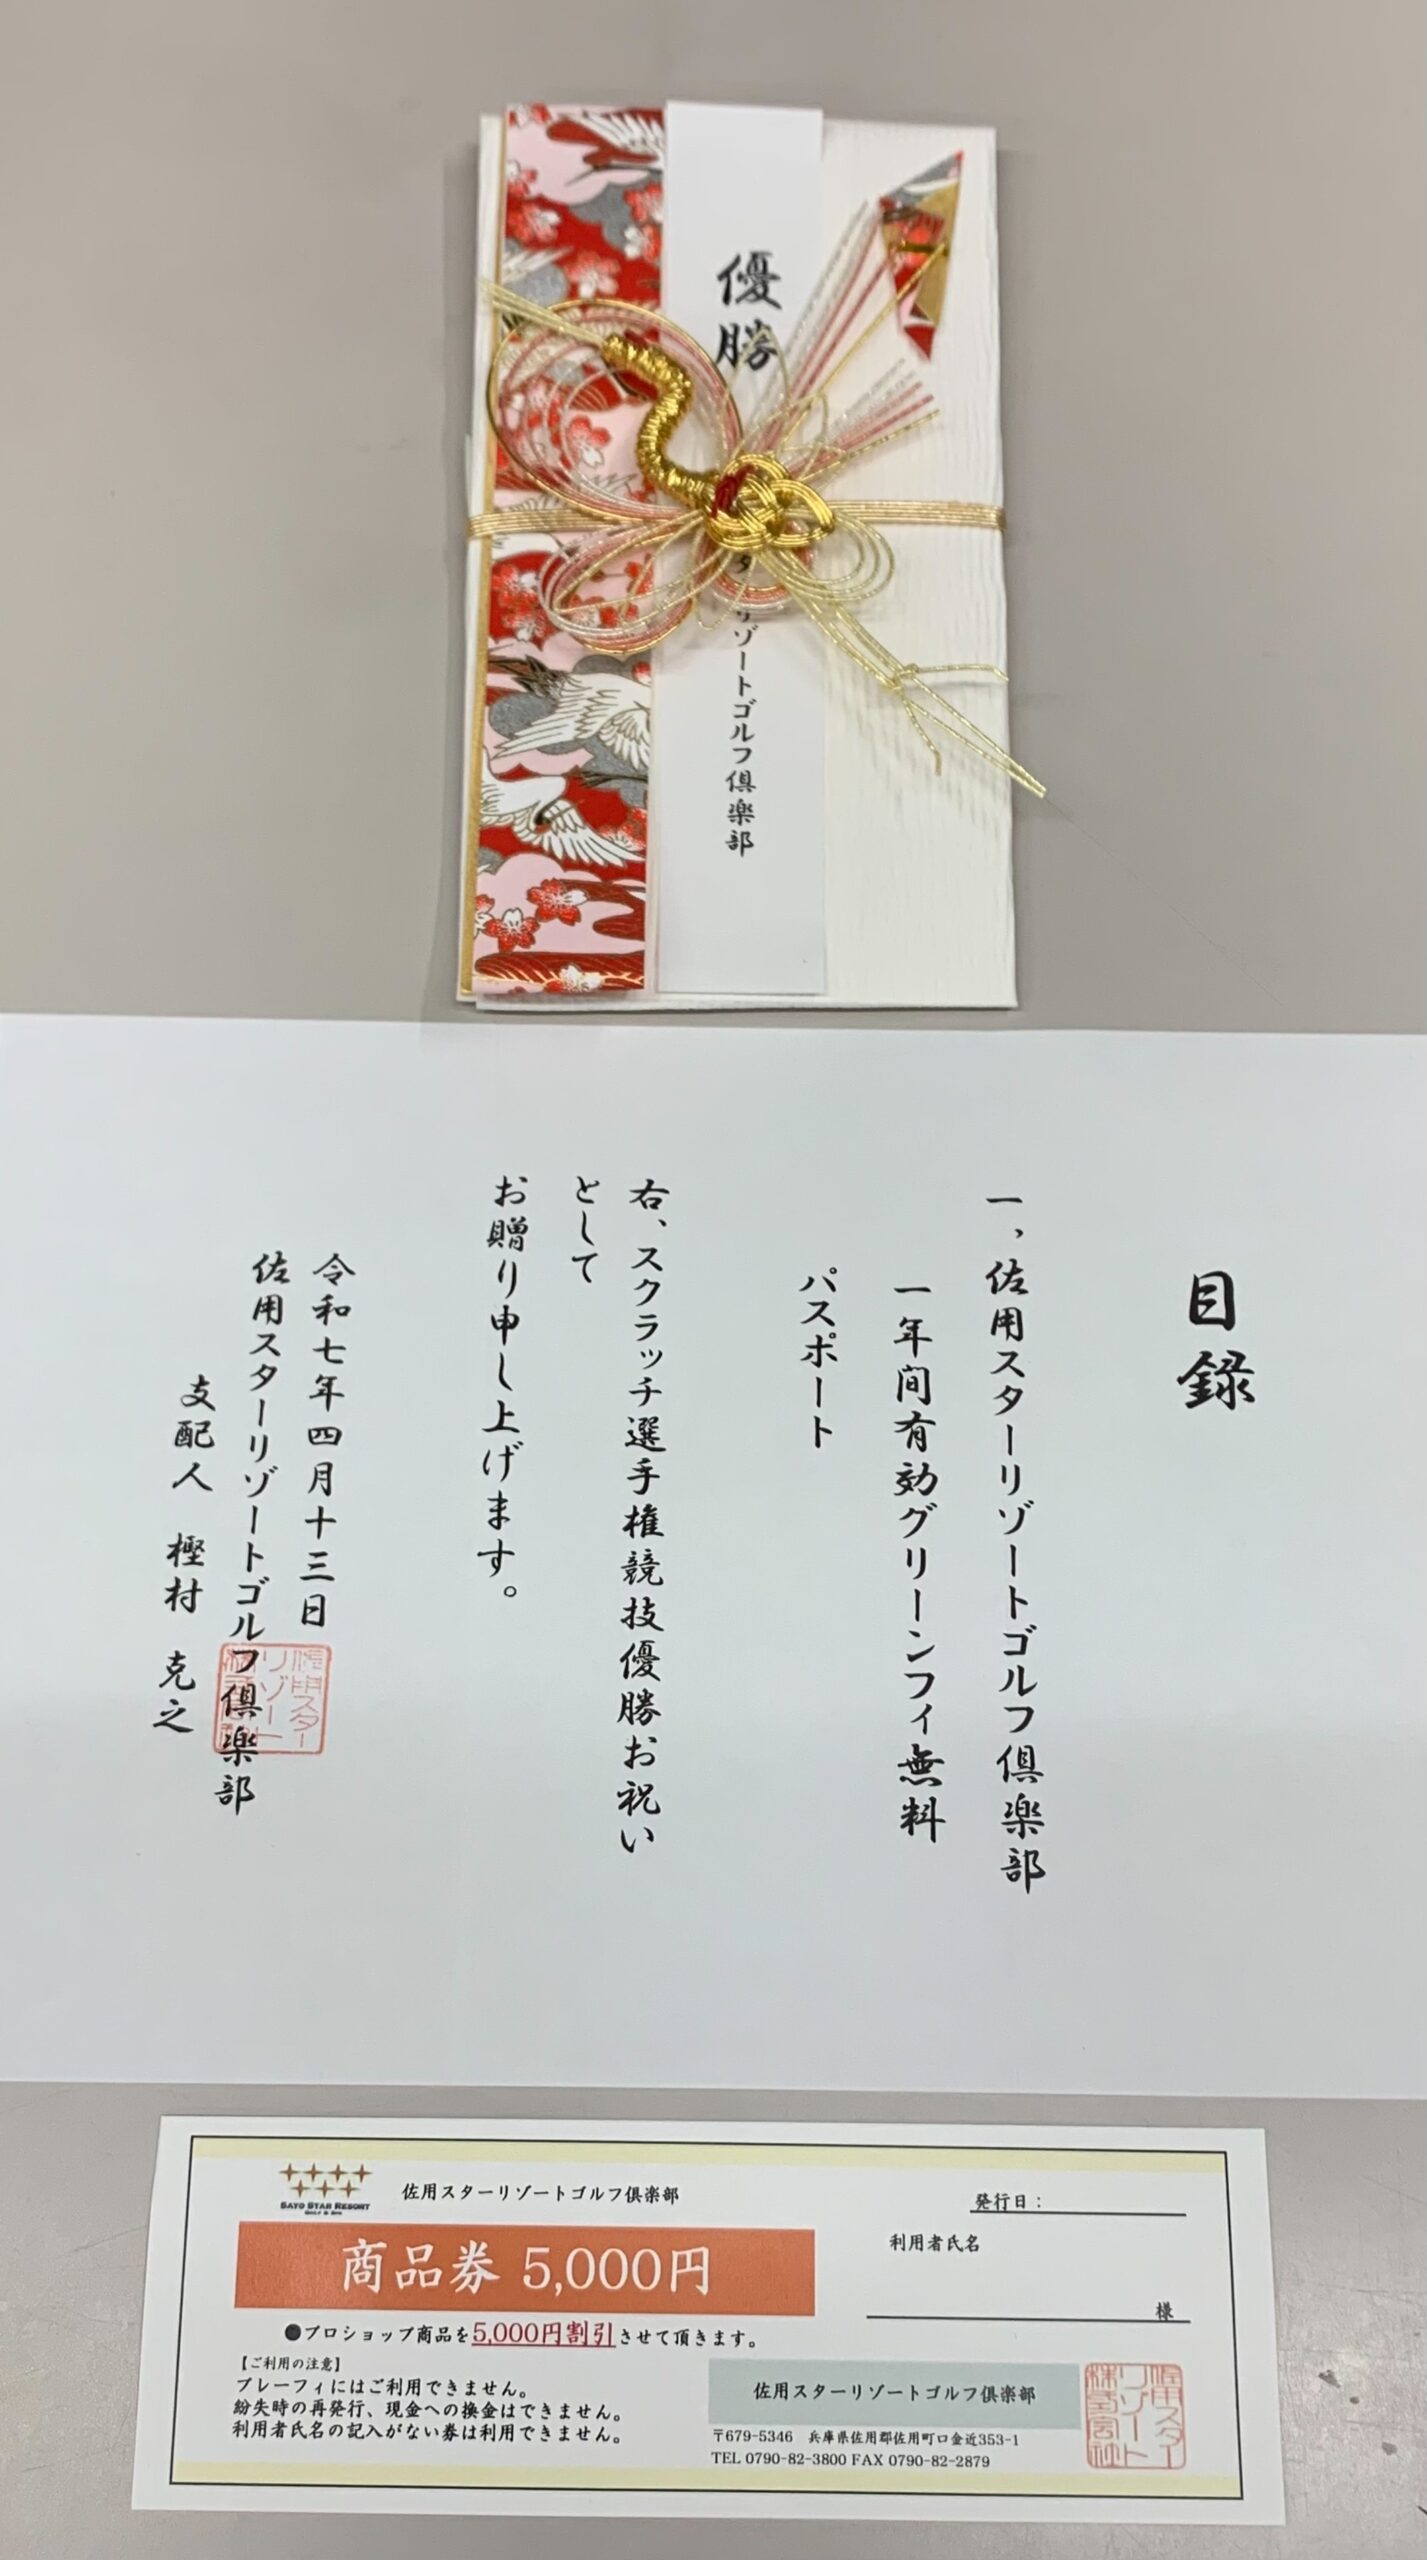 優勝
タ
リゾートゴルフ倶楽部
目録
一、佐用スターリゾートゴルフ倶楽部
一年間有効グリーンフィ無料
パスポート
右、スクラッチ選手権競技優勝お祝い
として
お贈り申し上げます。
令和七年四月十三日
佐用スターリゾートゴルフ倶楽部
支配人 樫村 克之
佐用スター
リゾート
株式会社
SAYO STAR RESORT
GOLF & SPA
佐用スターリゾートゴルフ倶楽部
発行日:
商品券 5,000円
利用者氏名
様
●プロショップ商品を5,000円割引させて頂きます。
【ご利用の注意】
プレーフィにはご利用できません。
紛失時の再発行、現金への換金はできません。
利用者氏名の記入がない券は利用できません。
佐用スターリゾートゴルフ倶楽部
〒679-5346 兵庫県佐用郡佐用町口金近353-1
TEL 0790-82-3800 FAX 0790-82-2879
佐用スター
リゾート
株式会社